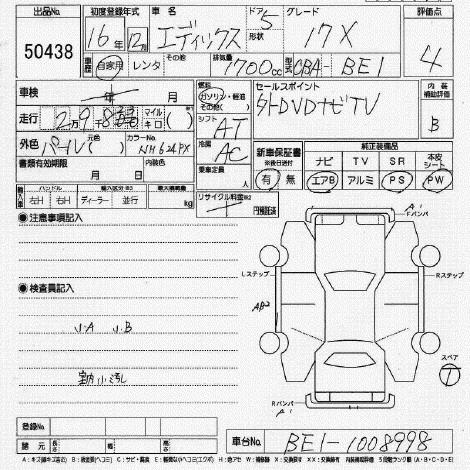 出品No. 初度登録年式 車名 ドア 5 グレード 評価点
50438 16年 12月 エディックス 形状 17X 4
車歴 自家用 レンタ その他 排気量 1700cc 型式 CBA- BE1
車検 年 月 燃料 ガソリン・軽油 その他( ) セールスポイント 内装 補助評価
走行 2万9千 マイル キロ ( ) シフト AT 外DVDナビTV B
外色 パール 元色 ( ) カラーNo. NH624PX 冷房 AC 新車保証書 ※後日送付 純正装備品
書類有効期限 月 日 内装色 乗車定員 人 有 無 ナビ TV SR 本皮シート
輸入車 ハンドル 右H 左H 輸入区分※3 ディーラー 並行 最大積載量 kg リサイクル料金※2 エアB アルミ PS PW
●注意事項記入 A1 Fバンパ
Lステップ Rステップ
●検査員記入 AB2
小A 小B
スペア
T
室内小汚れ
Rバンパ A1
登録No.
諸元 長さ 幅 高さ 車台No. BE1-1008998